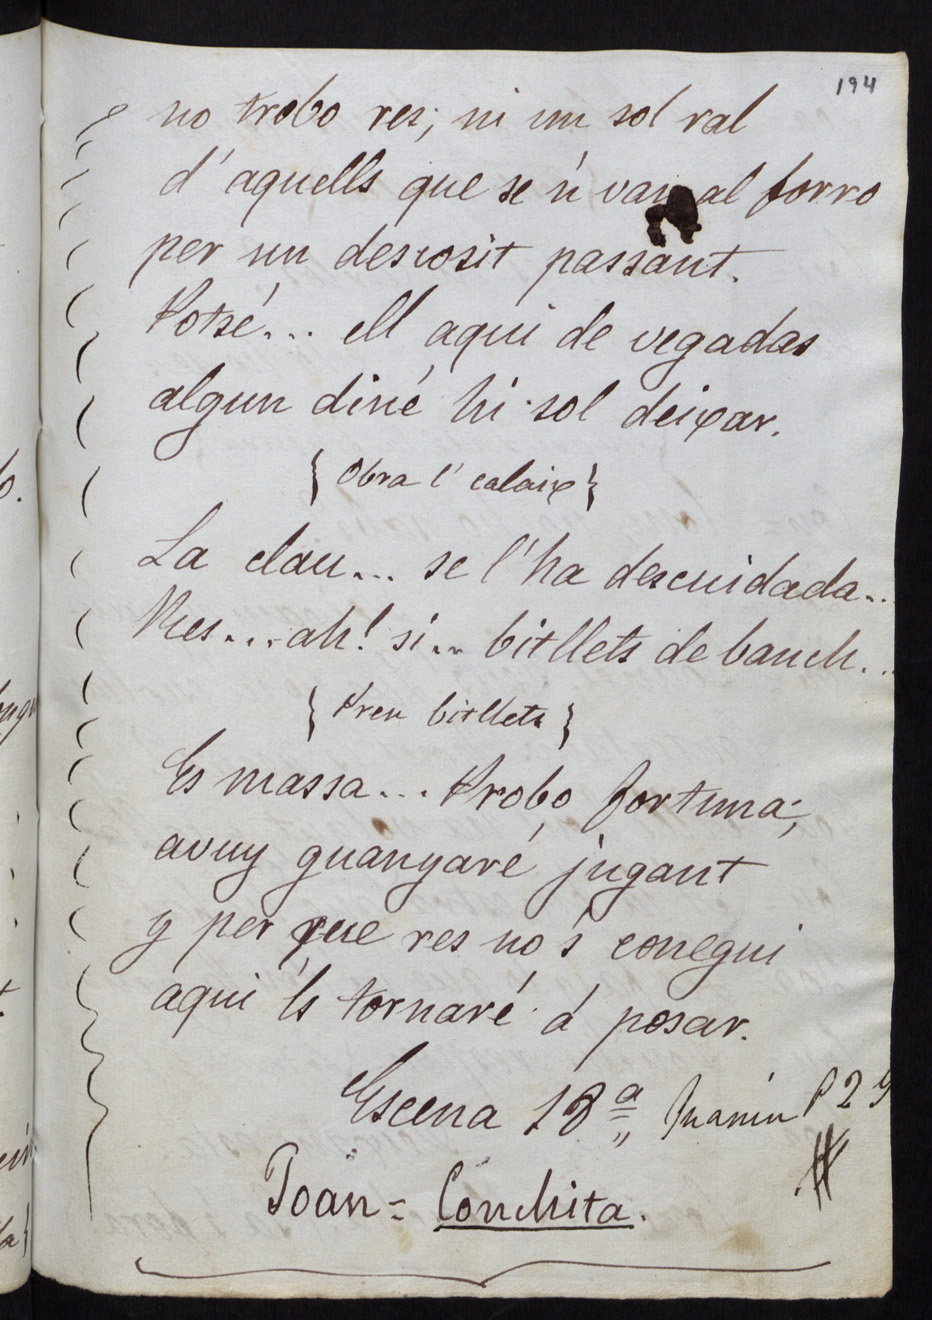 194
no trobo res; ni un sol ral
d'aquells que se'n van al forro
per un descosit passant.
Potsé... ell aqui de vegadas
algun diné hi sol deixar.
{ Obra l'calaix }
La clau... se l'ha descuidada...
Res... ah! si... bitllets de banch...
{ Pren bitllets }
Es massa... Probo fortuna;
avuy guanyaré jugant
y per que res no's conegui
aqui 'ls tornaré á posar.
Escena 18ª P 29
Joan = Conchita.